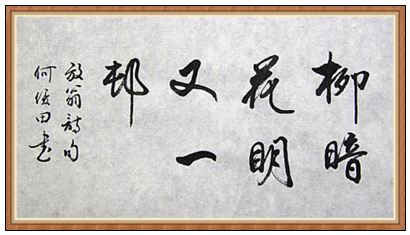 柳暗
花明
又一
邨
放翁詩句
何俊田書